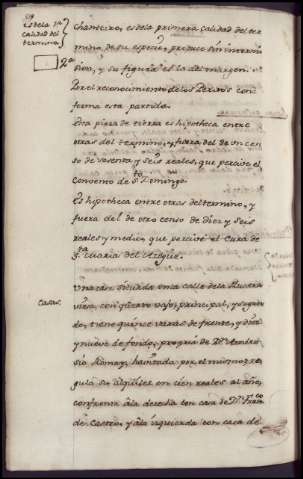 es de la 1ª
calidad del
termino
chanteiro, es de la primera calidad del ter
mino de su especie, produce sin interm
sion, y su figura es la del margen.
2ª
Por el reconocimiento de los Peritos con
forma esta partida.
Esta pieza de tierra es hipotheca entre
otras del termino, y fuera del de un cen
so de sesenta y seis reales, que percive el
Convento de Sto Domingo
Es hipotheca entre otras del termino, y
fuera del de otro censo de diez y seis
reales y medio, que percive el Cura de
Sta Maria del Azogue.
Casas.
Una casa situada en la calle de la
con quarto vajo, principal, y segun
do, tiene quince varas de frente, y diez
y nueve de fondo, propria de Dn Ambro
sio Romay, havitada por el mismo, re
gula su alquiler en cien reales al año,
confronta â la derecha con casa de Dn Franco
de Castro, y â la izquierda con casa de